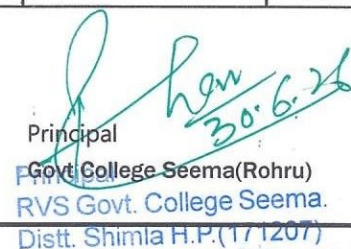 30.6.26
Principal
Govt College Seema(Rohru)
Principal
RVS Govt. College Seema.
Distt. Shimla H.P.(171207)